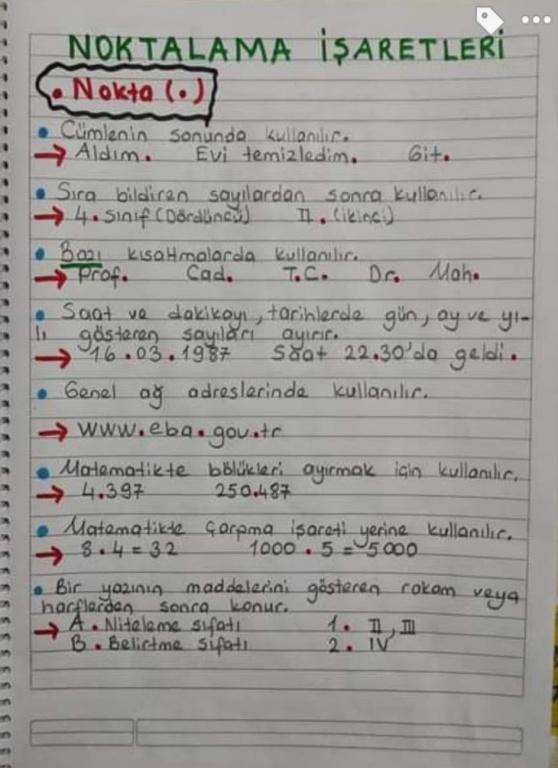 NOKTALAMA İŞARETLERİ
• Nokta (.)
• Cümlenin sonunda kullanılır.
→ Aldım. Evi temizledim. Git.
• Sıra bildiren sayılardan sonra kullanılır.
→ 4. sınıf (Dördüncü) II. (ikinci)
• Bazı kısaltmalarda kullanılır.
→ Prof. Cad. T.C. Dr. Mah.
• Saat ve dakikayı, tarihlerde gün, ay ve yı-
lı gösteren sayıları ayırır.
→ 16.03.1987 Saat 22.30'da geldi.
• Genel ağ adreslerinde kullanılır.
→ www.eba.gov.tr
• Matematikte bölükleri ayırmak için kullanılır.
→ 4.397 250.487
• Matematikte çarpma işareti yerine kullanılır.
→ 8.4=32 1000.5=5000
• Bir yazının maddelerini gösteren rakam veya
harflerden sonra konur.
→ A. Niteleme sıfatı 1. II, III
B. Belirtme sıfatı 2. IV